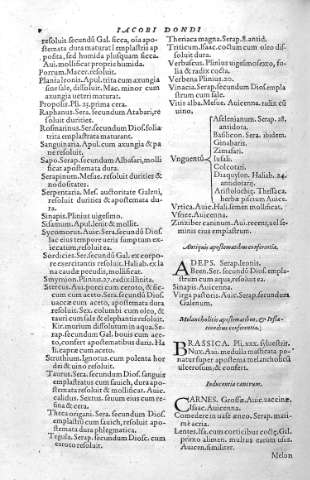 IACOBI DONDI
resoluit. Serap. secundum Gal. sicca, oīa apo-
stemata dura maturat! emplastri ap
posita, sed humida plusquam sicca.
Aui. mollificat proprie humida.
Porrum. Macer. resoluit.
Planta leonis. Apul. trita cum axungia
sine sale, dissoluit. Mac. minor cum
axungia ueteri maturat.
Propolis. Pli. 23. prima cera.
Raphanus. Sera. secundum Atabari, re
soluit durities.
Rosmarinus. Ser. secundum Diosc. folia
trita emplastrata maturant.
Sanguinaria. Apul. cum axungia & pa
ne resoluit.
Sapo. Serap. secundum Albasari, molli
ficat apostemata dura.
Serapinum. Mesue. resoluit durities &
nodositates.
Serpentaria. Mes. auctoritate Galeni,
resoluit durities & apostemata du-
ra.
Sinapis. Plinius uigesimo.
Sisamum. Apul. lenit & mollit.
Sycomorus. Auic. Sera. secundū Dios.
lac eius tempore ueris sumptum ex-
iccatum, resolutiua.
Sordicies. Ser. secundū Gal. ex corpo-
re exercitantis resoluit. Haliab. ex la
na caudae pecudis, mollificat.
Smyrnion. Plinius. 27. radix illinita.
Stercus. Aui. porci cum ceroto, & sic-
cum cum aceto. Sera. secundū Dios.
uaccae cum aceto, apostemata dura
resoluit. Sex. columbi cum oleo, &
tauri cum sale & elephantis resoluit.
Kir. murium dissolutum in aqua. Se
rap. secundum Gal. bouis cum ace-
to, confert apostematibus duris. Ha
li. caprae cum aceto.
Struthium. Ignotus. cum polenta hor
dei & uino resoluit.
Taurus. Sera. secundum Dios. sanguis
emplastratus cum sauich, dura apo-
stemata resoluit & mollificat. Auic.
calidus. Sextus. seuum eius cum re-
sina & cera.
Theta origani. Sera. secundum Dios.
emplastrū cum sauich, resoluit apo-
stemata phlegmatica.
Tegula. Serap. secundum Diosc. cum
ceroto resoluit.
Theriaca magna. Serap. 8. antid.
Triticum. Isaac. coctum cum oleo dis-
soluit dura.
Verbascus. Plinius uigesimosexto, fo-
lia & radix cocta.
Verbena Plinius. 20.
Vinacia. Serap. secundum Dios. empla
strum cum sale.
Vitis alba. Mesue. Auicenna. radix cū
uino.
Vnguentū
Asclenianum. Serap. 28.
antidota.
Basilicon. Sera. ibidem.
Ginabaris.
Zamasati.
Iusali.
Colcotari.
Diaquylon. Haliab. 24.
antidotarij.
Aristolochię. Thesaca.
herba piscium Auice.
Vrtica. Auic. Hali. semen mollificat.
Vsore. Auicenna.
Zinziber caninum. Aui. recens, uel se-
minis eius emplastrum.
Antiquis apostematibus conferentia.
ADEPS. Serap. leonis.
Been. Ser. secundū Diosc. empla-
strum cum aqua, resolutiua.
Sinapis. Auicenna.
Virga pastoris. Auic. Serap. secundum
Galenum.
Melancholicis apostematibus, & Infla-
tionibus conferentia.
BRASSICA. Pli. xxx. syluestris.
Nux. Aui. medulla masticata po-
natur super apostema melancholicū
ulcerosum, & confert.
Inducentia cancrum.
CARNES. Grossae. Auic. uaccinae,
Isaac. Auicenna.
Comedere in uase aeneo. Serap. maxi-
me acria.
Lentes. Isa. cum corticibus coctae. Gil.
primo alimen. multus earum usus.
Auicen. similiter.
Melon